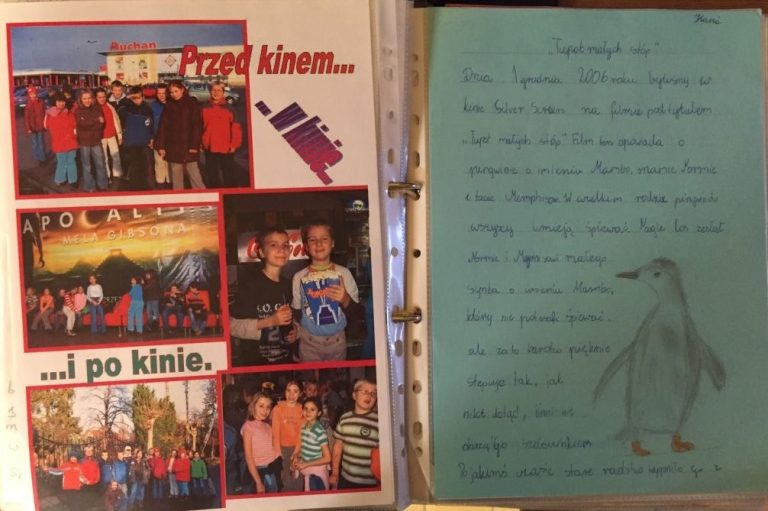 Auchan
Przed kinem...
... w kinie...
APOCALY
MELA GIBSONA
...i po kinie.
Kasia
"Tupot małych stóp"
Dnia 1 grudnia 2006 roku byliśmy w
kinie Silver Screen na filmie pod tytułem
"Tupot małych stóp" Film ten opowiada o
pingwinie o imieniu Mambo, mamie Normie
i tacie Memphisie. W wielkim rodzie pingwinów
wszyscy umieją śpiewać. Magie los zesłał
Normie i małego
synka o imieniu Mambo,
który nie potrafi śpiewać
ale za to bardzo pięknie
stepuje tak, jak
nikt dotąd, inni
go
Po jakimś czasie stare